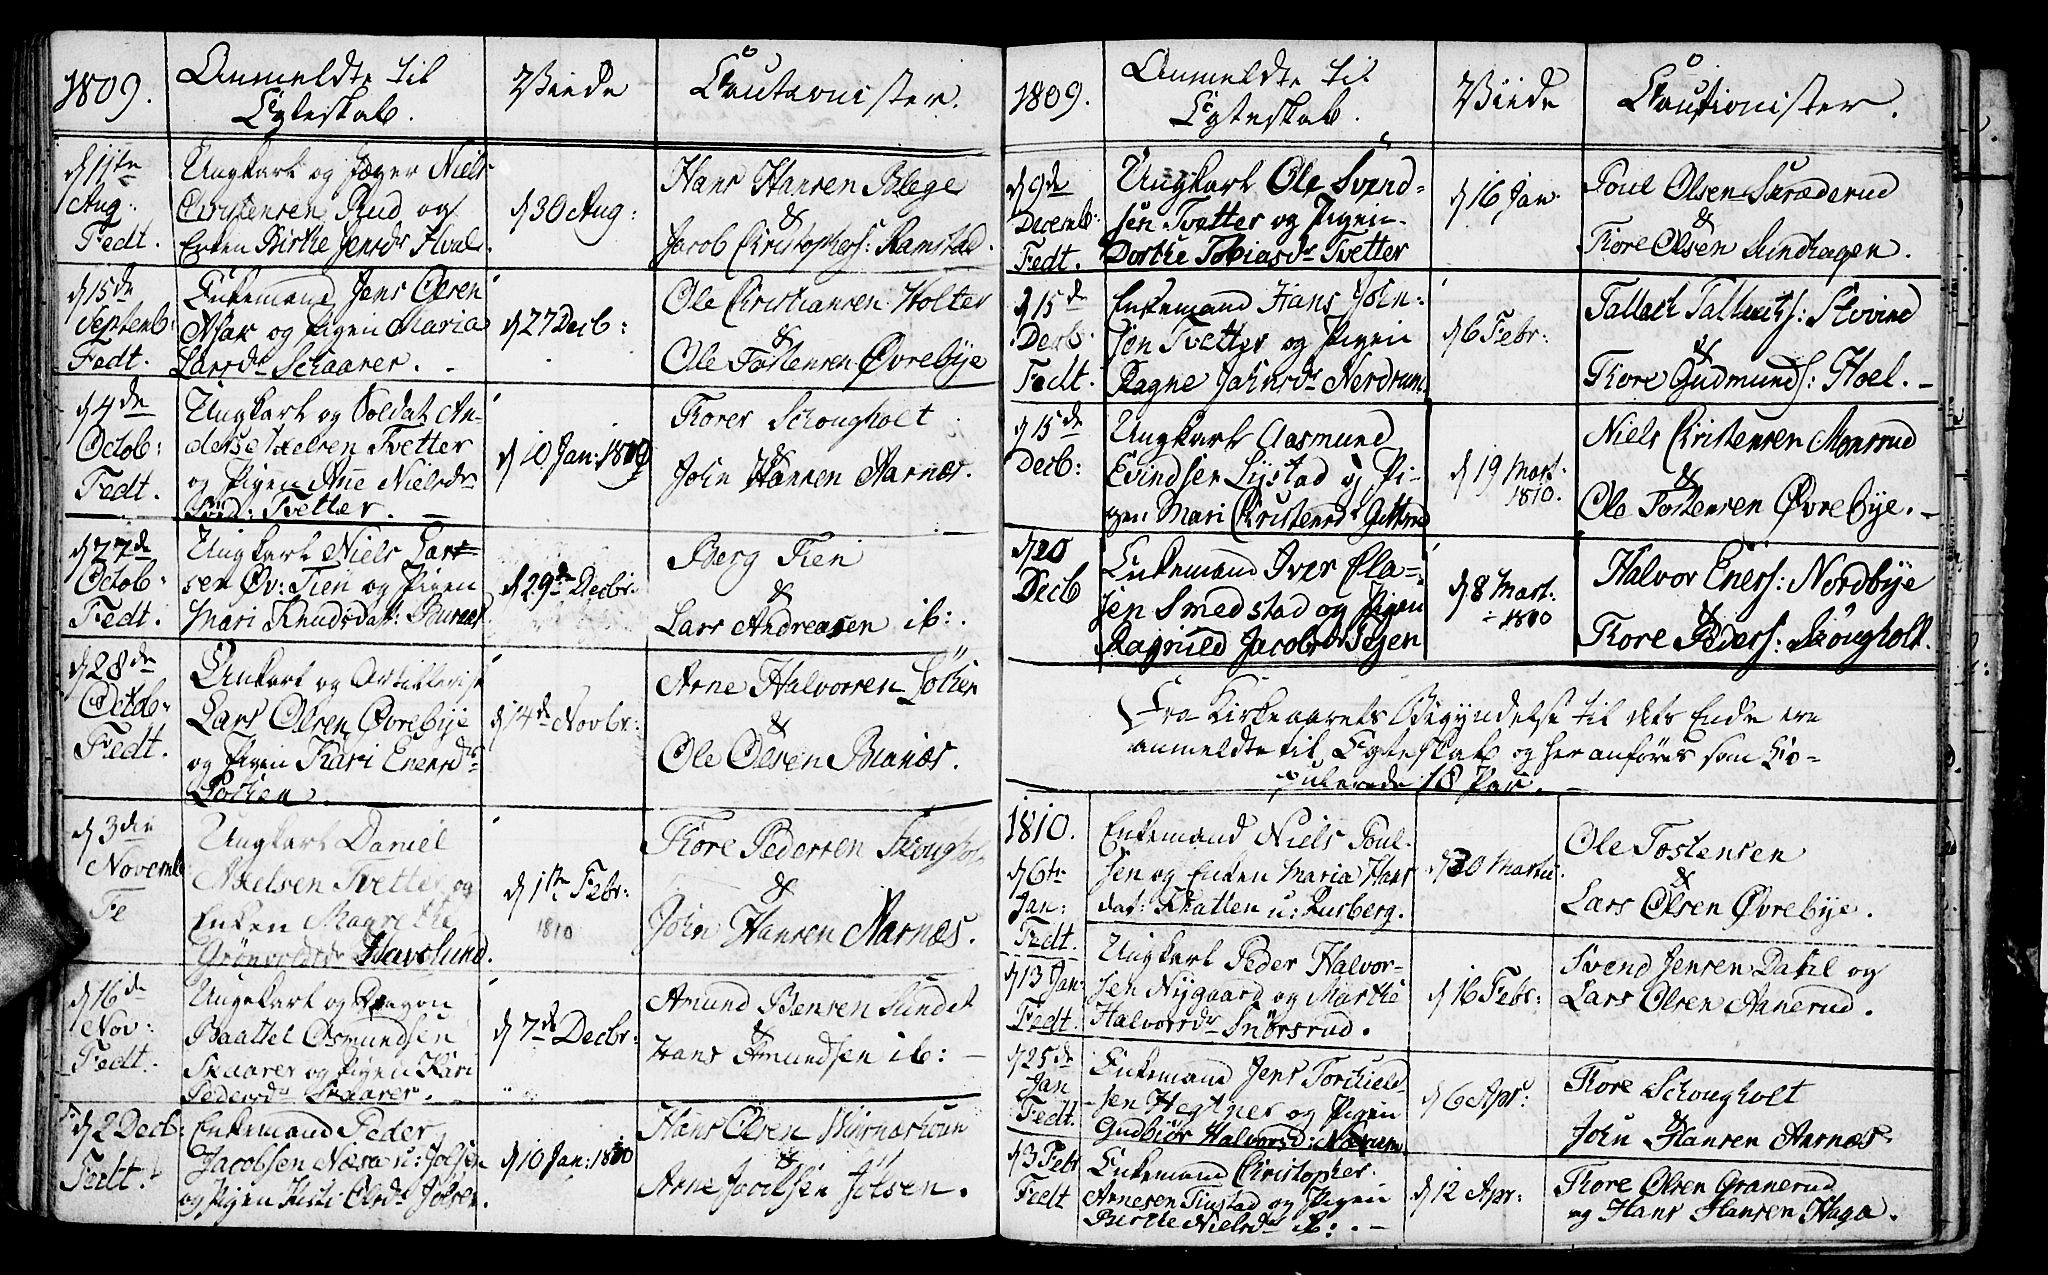 1809. Anmeldte til Viede Cautionister.
Egteskab.
d 11te Aug: Fedt.
Ungkarl og Jæger Niels
Christensen Rud og
Enken Birthe Jensdr Hval.
d 30 Aug:
Hans Hansen Blege
&
Jacob Christophers: Ramstad.
d 15de Septemb: Fedt.
Enkemand Jens Olsen
Asar og Pigen Maria
Larsdr Schaarer. -
d 27 Decb:
Ole Christiansen Holter
&
Ole Tostensen Øvrebye
d 4de Octob: Fedt.
Ungkarl og Soldat An-
ders Axelsen Tvetter
og Pigen Ane Nielsdr
Sød: Tvetter. -
d 10 Jan: 1810
Thorer Schougholt
&
John Hansen Aarnæs.
d 27de Octob: Fedt.
Ungkarl Niels Lar-
sen Øv: Tien og Pigen
Mari Knudsdatt:
d 29de Decbr.
Berg Tien
&
Lars Andreasen ib:
d 28de Octob: Fedt.
Unkarl og Artillerist
Lars Olsen Øvrebye
og Pigen Kari Enersdr
Løken.
d 14de Novbr:
Arne Halvorsen Løken
&
Ole Olsen Branæs.
d 3die Novemb Fe
Ungkarl Daniel
Axelsen Tvetter og
Enken Magrethe
Grønvoldsdr Havslund.
d 1te Febr: 1810
Thore Pedersen Skoughol
&
John Hansen Aarnæs.
d 16de Nov: Fedt.
Ungekarl og Dragon
Baattel Osmundsen
Skaarer og Pigen Kari
Pedersdr Skaarer.
d 7de Decbr:
Amund Bensen Sundet
&
Hans Amundsen ib: -
d 2 Decb: Fedt.
Enkemand Peder
Jacobsen Næss u: Jølsen
og Pigen Kisti Olsdr Jølsen.
d 10 Jan: 1810
Hans Olsen
&
Arne Jacobsen Jølsen.
1809. Anmeldte til Viede Cautionister.
Egteskab.
d 9de Decemb: Fedt.
Ungkarl Ole Svend-
sen Tvetter og Pigen
Dorthe Tobiasdr Tvetter
d 16 Jan
Poul Olsen Skræderud
&
Thore Olsen Sundhagen.
d 15de Decb: Fedt.
Enkemand Hans John-
sen Tvetter og Pigen
Ragne Johnsdr Nerdrum
d 6 Febr:
Tallach Tallachs: Stovind
&
Thore Gudmunds: Hoel. -
d 15de Decb:
Ungkarl Aasmund
Evindsen Lystad og Pi-
gen Mari Christensd
d 19 Mart: 1810.
Niels Christensen Monsrud
&
Ole Tostensen Øvrebye. -
d 20 Decb
Enkemand Iver Ola-
sen Smedstad og Pigen
Ragnild Jacobsdr Tejen
d 8 Mart: 1810
Halvor Eners: Nordbye
&
Thore Peders: Skougholt.
Fra Kirkeaarets Begyndelse til dets Ende ere
anmeldte til Egteskab og her anføres som Co-
pulerede 18 Par. -
1810.
d 6te Jan: Fedt.
Enkemand Niels Poul-
sen og Enken Maria Hans
dat: Skatten u: Kusberg.
d 20 Martii.
Ole Tostensen
&
Lars Olsen Øvrebye.
d 13 Jan: Fedt
Ungkarl Peder Halvor-
sen Nygaard og Marthe
Halvorsdr Snørsrud.
d 16 Febr:
Svend Jensen Dahl og
Lars Olsen Aanerud.
d 25de Jan Fedt.
Enkemand Jens Torkield-
sen Hegtner og Pigen
Gudbiør Halvorsd:
d 6 Apr:
Thore Schougholt
&
John Hansen Aarnæs
d 3 Febr Fedt
Enkemand Christopher
Arnesen Tiustad og Pigen
Birthe Nielsdr ib: . -
d 12 Apr:
Thore Olsen Granerud
og Hans Hansen Haga.